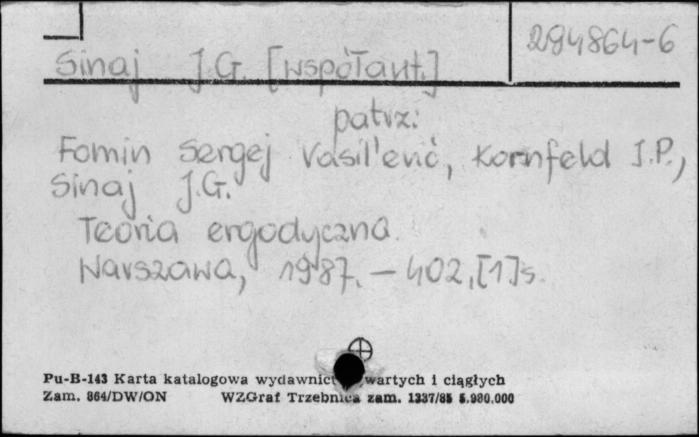 294864-6
Sinaj J.G. [współaut.]
patrz:
Fomin Sergej Vasil'evič, Kornfeld I.P.,
Sinaj J.G.
Teoria ergodyczna.
Warszawa, 1987. – 402, [1] s.
Pu-B-143 Karta katalogowa wydawnict wartych i ciągłych
Zam. 864/DW/ON WZGraf Trzebnica zam. 1337/85 5.980.000